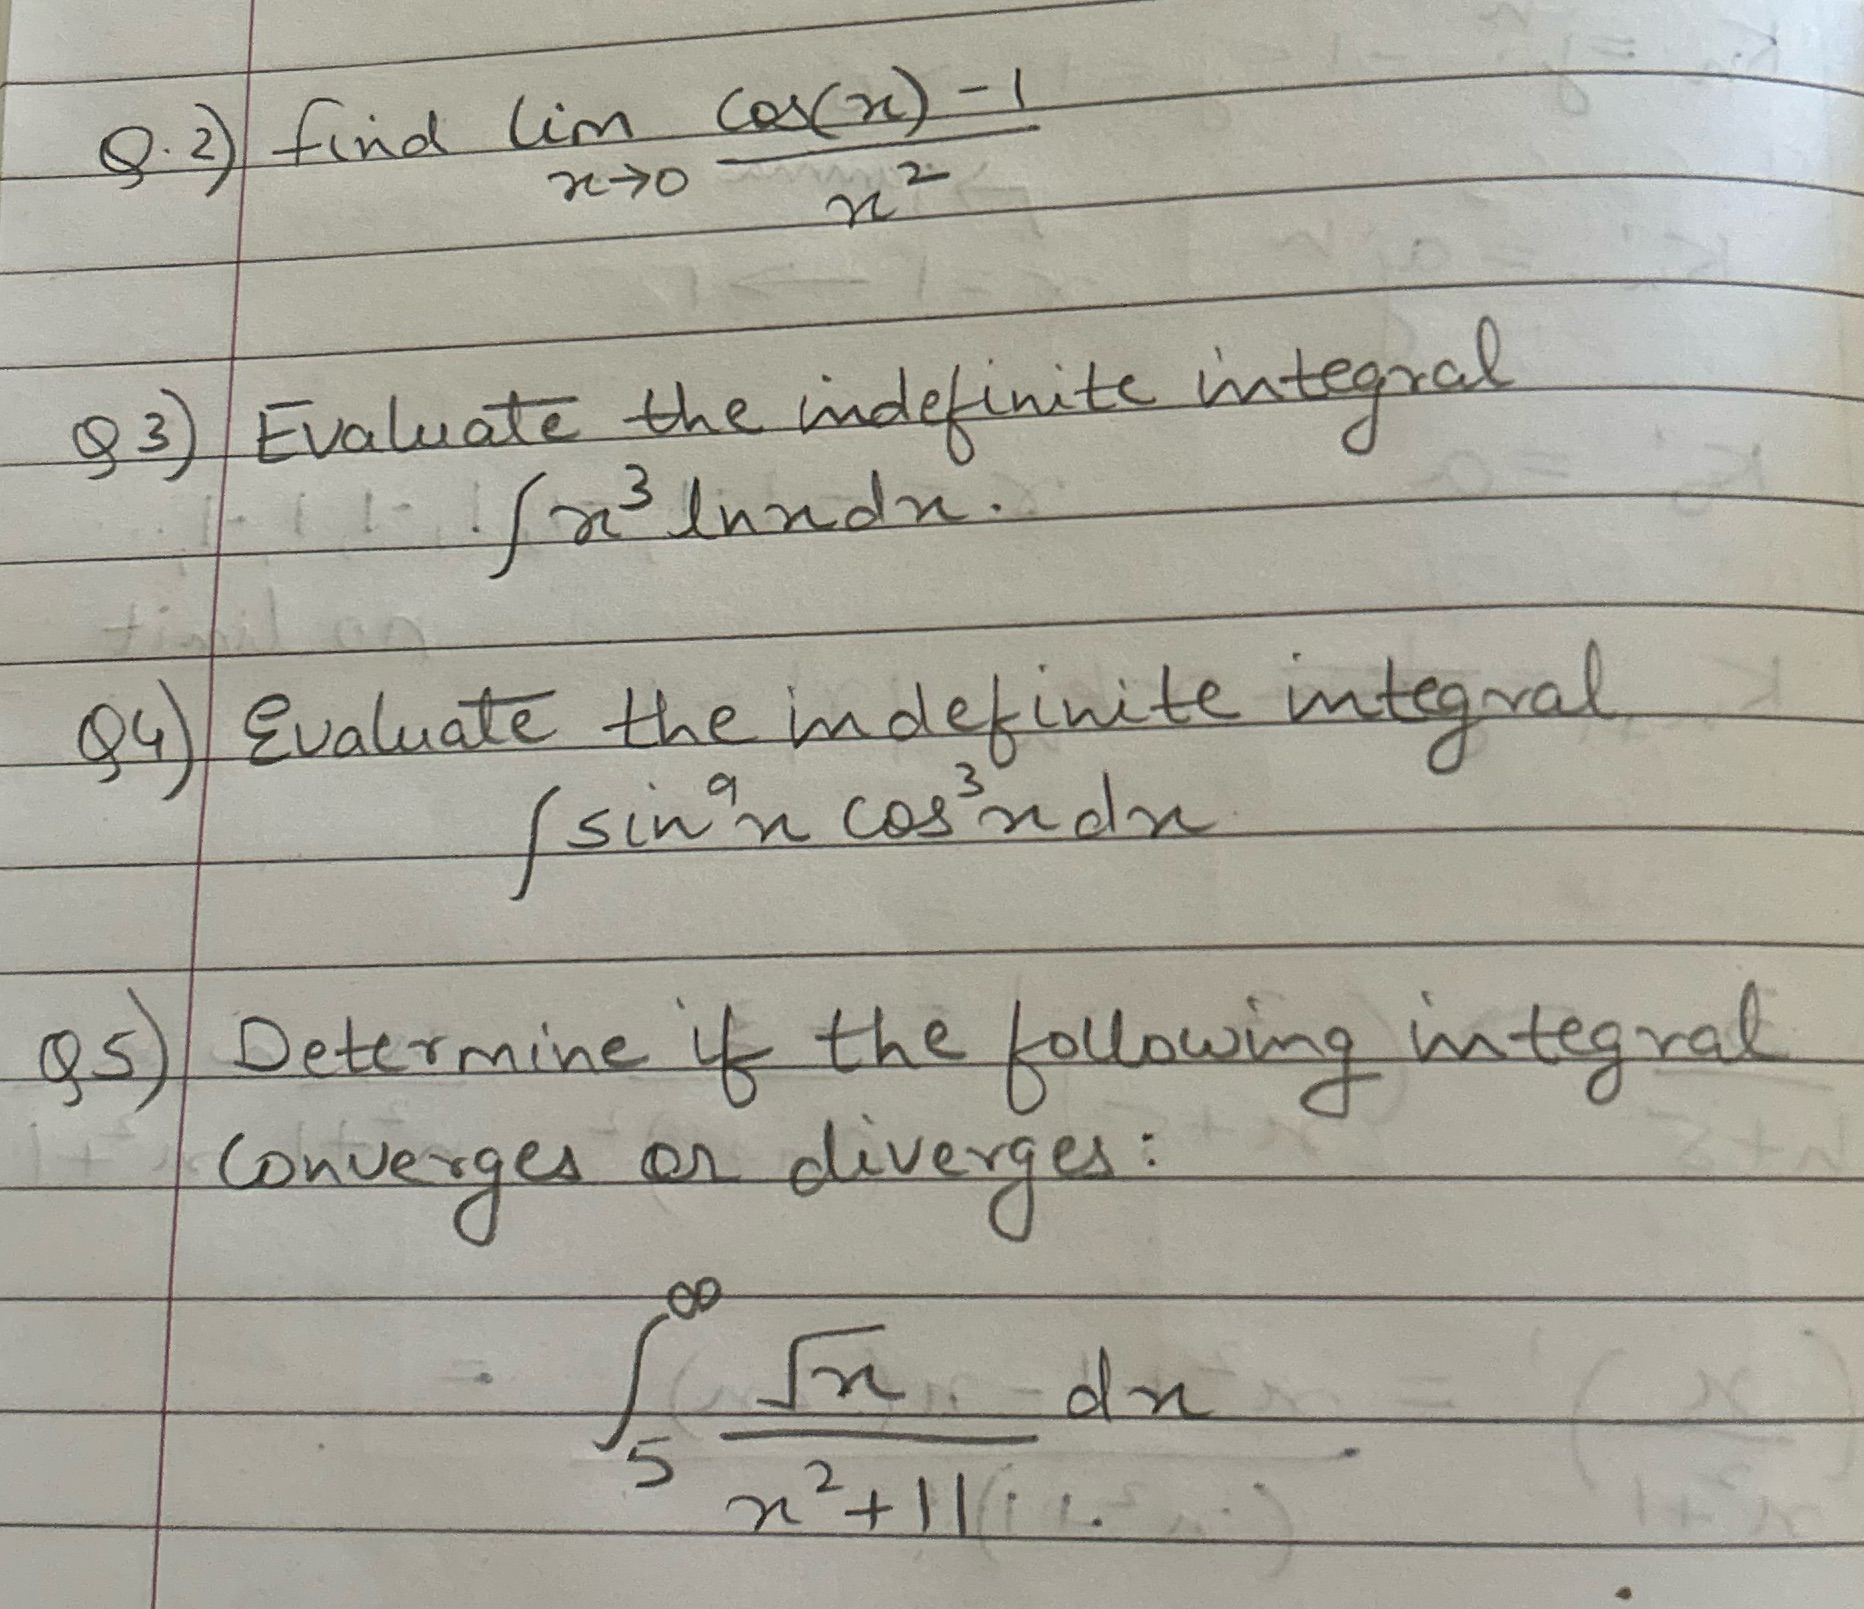 Q.2) find lim cos(x) - 1
x→0 x²
Q3) Evaluate the indefinite integral
∫x³ lnx dx.
Q4) Evaluate the indefinite integral
∫sin⁹x cos³x dx
Q5) Determine if the following integral
converges or diverges:
∫₅^∞ √x dx
x²+11